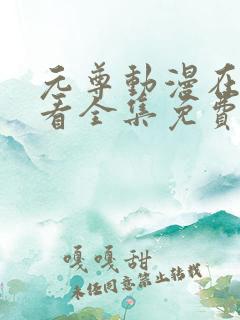 元尊動漫在
看全集免費
嘎嘎甜
未经同意禁止转载